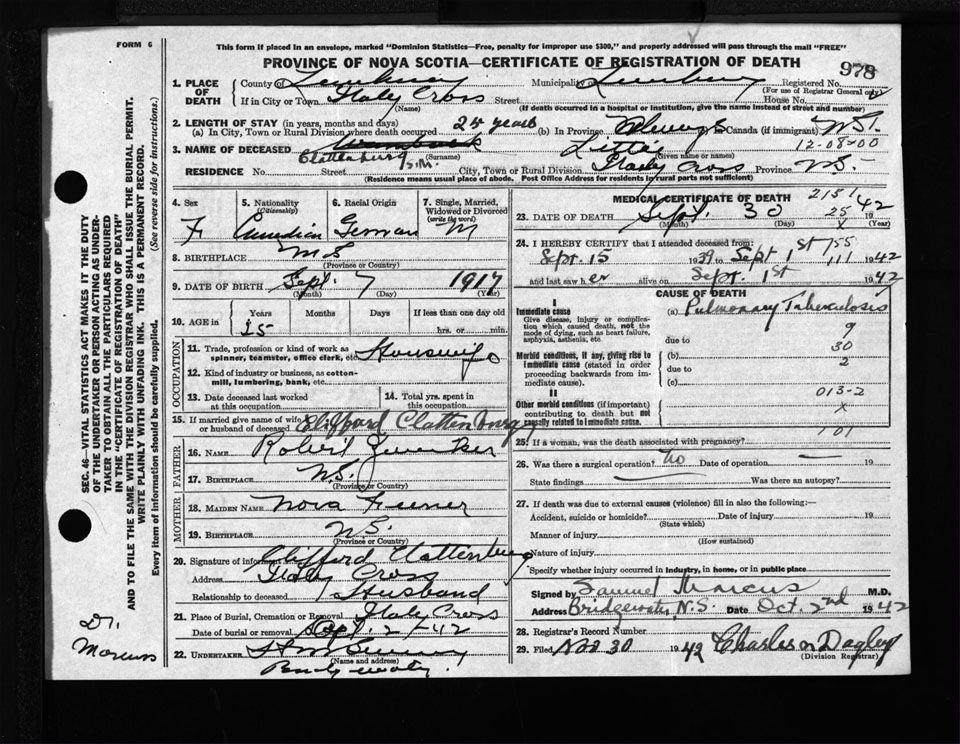 FORM 6
This form if placed in an envelope, marked "Dominion Statistics—Free, penalty for improper use $300," and properly addressed will pass through the mail "FREE"
PROVINCE OF NOVA SCOTIA—CERTIFICATE OF REGISTRATION OF DEATH
978
1. PLACE OF DEATH
County of Lunenburg Municipality of Lunenburg Registered No.
(For use of Registrar General only)
If in City or Town Italy Cross Street House No.
(Name) (If death occurred in a hospital or institution, give the name instead of street and number)
2. LENGTH OF STAY (in years, months and days)
(a) In City, Town or Rural Division where death occurred 25 years (b) In Province Always Canada (if immigrant) N.S.
12-08-00
3. NAME OF DECEASED Wambolt Lettie
Clattenburg (Surname) (Given name or names)
RESIDENCE No. Street City, Town or Rural Division Italy Cross Province N.S.
(Residence means usual place of abode. Post Office Address for residents in rural parts not sufficient)
4. Sex
F
5. Nationality (Citizenship)
Canadian
6. Racial Origin
German
7. Single, Married, Widowed or Divorced (write the word)
M
8. BIRTHPLACE N.S.
(Province or Country)
9. DATE OF BIRTH Sept. 7 1917
(Month) (Day) (Year)
10. AGE in Years Months Days If less than one day old
25 hrs. or min.
OCCUPATION
11. Trade, profession or kind of work as spinner, teamster, office clerk, etc. Housewife
12. Kind of industry or business, as cotton-mill, lumbering, bank, etc.
13. Date deceased last worked at this occupation
14. Total yrs. spent in this occupation
15. If married give name of wife or husband of deceased Clifford Clattenburg
FATHER
16. NAME Robert Zwicker
17. BIRTHPLACE N.S.
(Province or Country)
MOTHER
18. MAIDEN NAME Nova
19. BIRTHPLACE N.S.
(Province or Country)
20. Signature of informant Clifford Clattenburg
Address Italy Cross
Relationship to deceased Husband
21. Place of Burial, Cremation or Removal Italy Cross
Date of burial or removal 2/42
22. UNDERTAKER
(Name and address)
Bridgewater
MEDICAL CERTIFICATE OF DEATH
2151
23. DATE OF DEATH Sept. 30 1942
25
(Month) (Day) (Year)
24. I HEREBY CERTIFY that I attended deceased from:
Sept. 15 1939 to Sept 1st 1942
155
111
and last saw her alive on Sept. 1st 1942
CAUSE OF DEATH
I
Immediate cause
Give disease, injury or complication which caused death, not the mode of dying, such as heart failure, asphyxia, asthenia, etc.
(a) Pulmonary Tuberculosis
9
due to
30
Morbid conditions, if any, giving rise to immediate cause (stated in order proceeding backwards from immediate cause).
(b)
2
due to
(c)
II
013-2
Other morbid conditions (if important) contributing to death but not causally related to immediate cause.
X
101
25. If a woman, was the death associated with pregnancy?
26. Was there a surgical operation? No Date of operation 19
State findings Was there an autopsy?
27. If death was due to external causes (violence) fill in also the following:—
Accident, suicide or homicide? Date of injury 19
(State which)
Manner of injury
(How sustained)
Nature of injury
Specify whether injury occurred in industry, in home, or in public place
Signed by Samuel Marcus M.D.
Address Bridgewater, N.S. Date Oct. 2nd 1942
28. Registrar's Record Number
29. Filed Nov 30 1942 Charles W Dagley
(Division Registrar)
SEC. 46—VITAL STATISTICS ACT MAKES IT THE DUTY
OF THE UNDERTAKER OR PERSON ACTING AS UNDER-
TAKER TO OBTAIN ALL THE PARTICULARS REQUIRED
IN THE "CERTIFICATE OF REGISTRATION OF DEATH"
AND TO FILE THE SAME WITH THE DIVISION REGISTRAR WHO SHALL ISSUE THE BURIAL PERMIT.
WRITE PLAINLY WITH UNFADING INK. THIS IS A PERMANENT RECORD.
Every item of information should be carefully supplied. (See reverse side for instructions.)
Dr.
Marcus